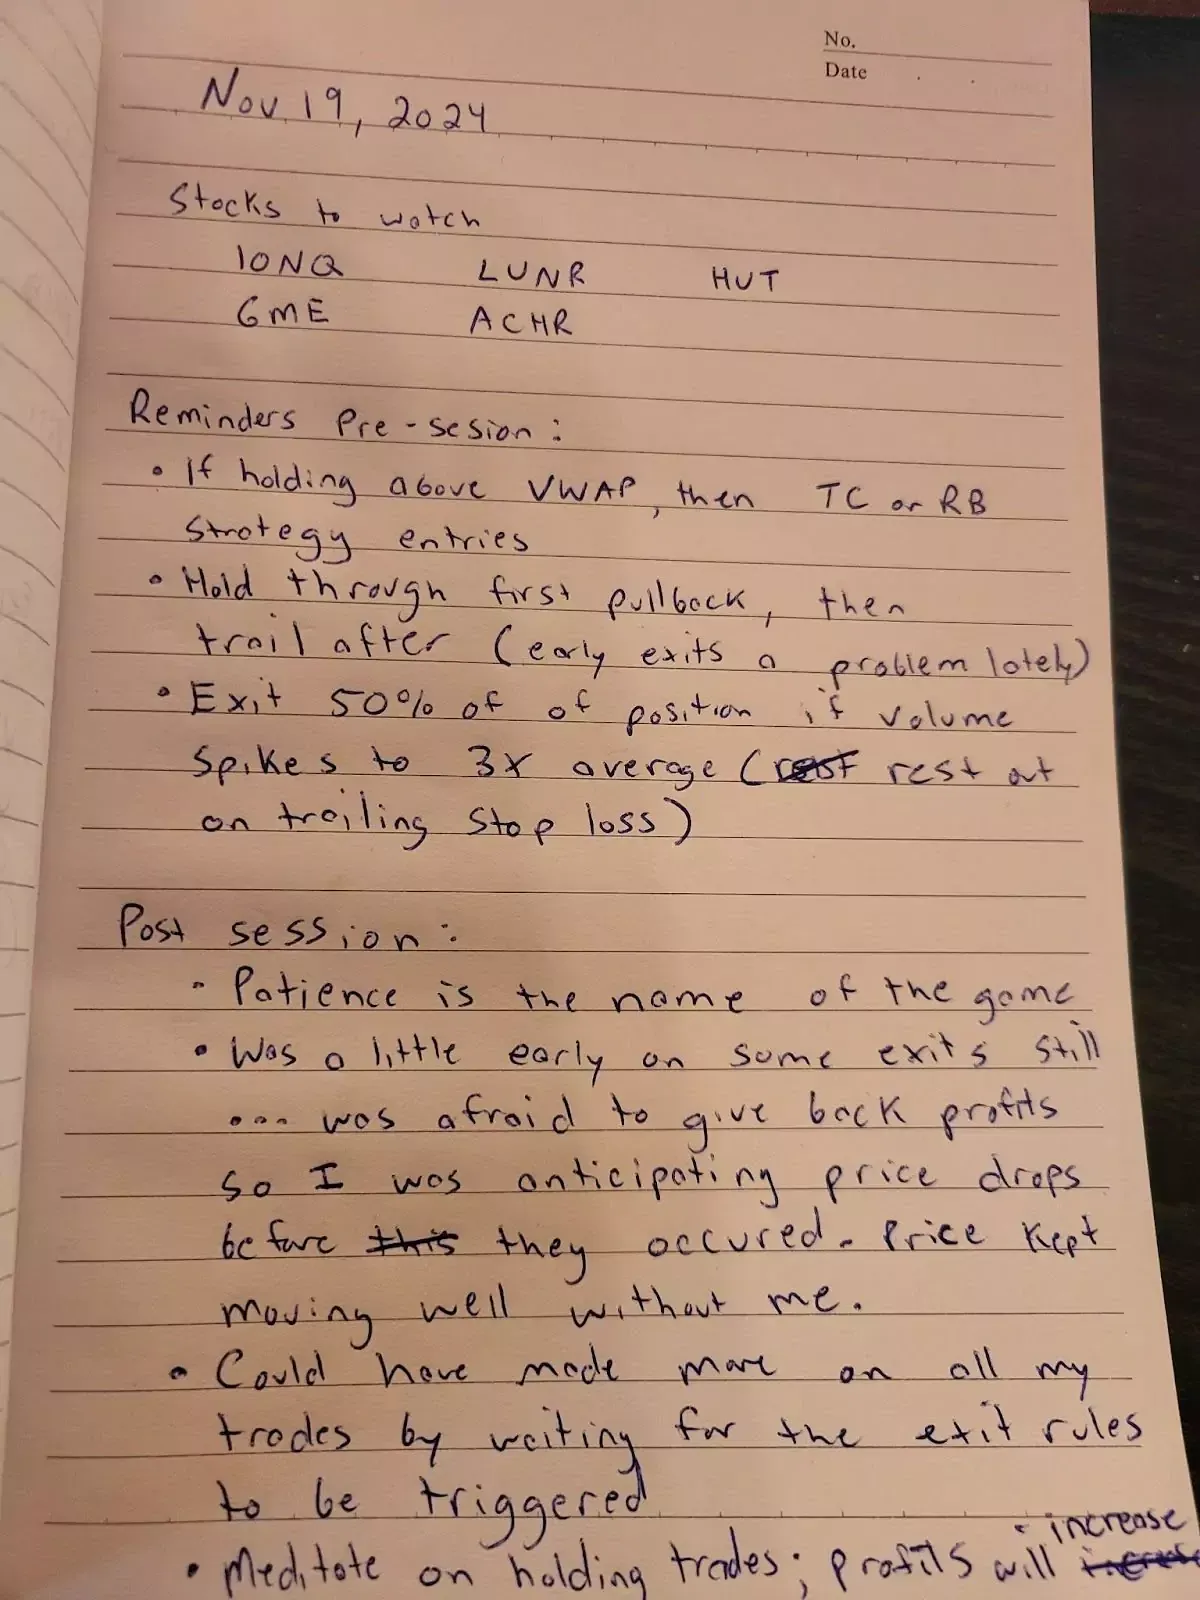 No.
Date
Nov 19, 2024
Stocks to watch
IONQ LUNR HUT
GME ACHR
Reminders Pre-sesion:
• If holding above VWAP, then TC or RB
strategy entries
• Hold through first pullback, then
trail after (early exits a problem lately)
• Exit 50% of of position if volume
spikes to 3x average (rest rest out
on trailing stop loss)
Post session:
• Patience is the name of the game
• Was a little early on some exits still
... was afraid to give back profits
so I was anticipating price drops
before this they occured. Price kept
moving well without me.
• Could have made more on all my
trades by waiting for the exit rules
to be triggered
increase
• Meditate on holding trades; profits will